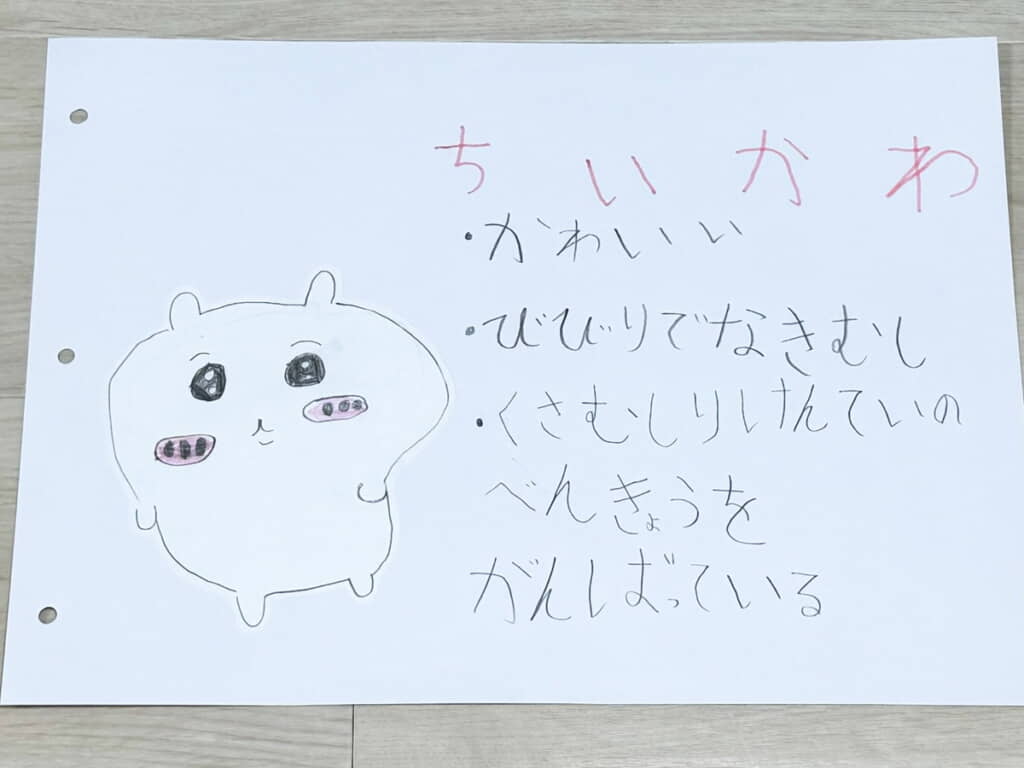 ちいかわ
・かわいい
・びびりでなきむし
・くさむしりけんていの
べんきょうを
がんばっている